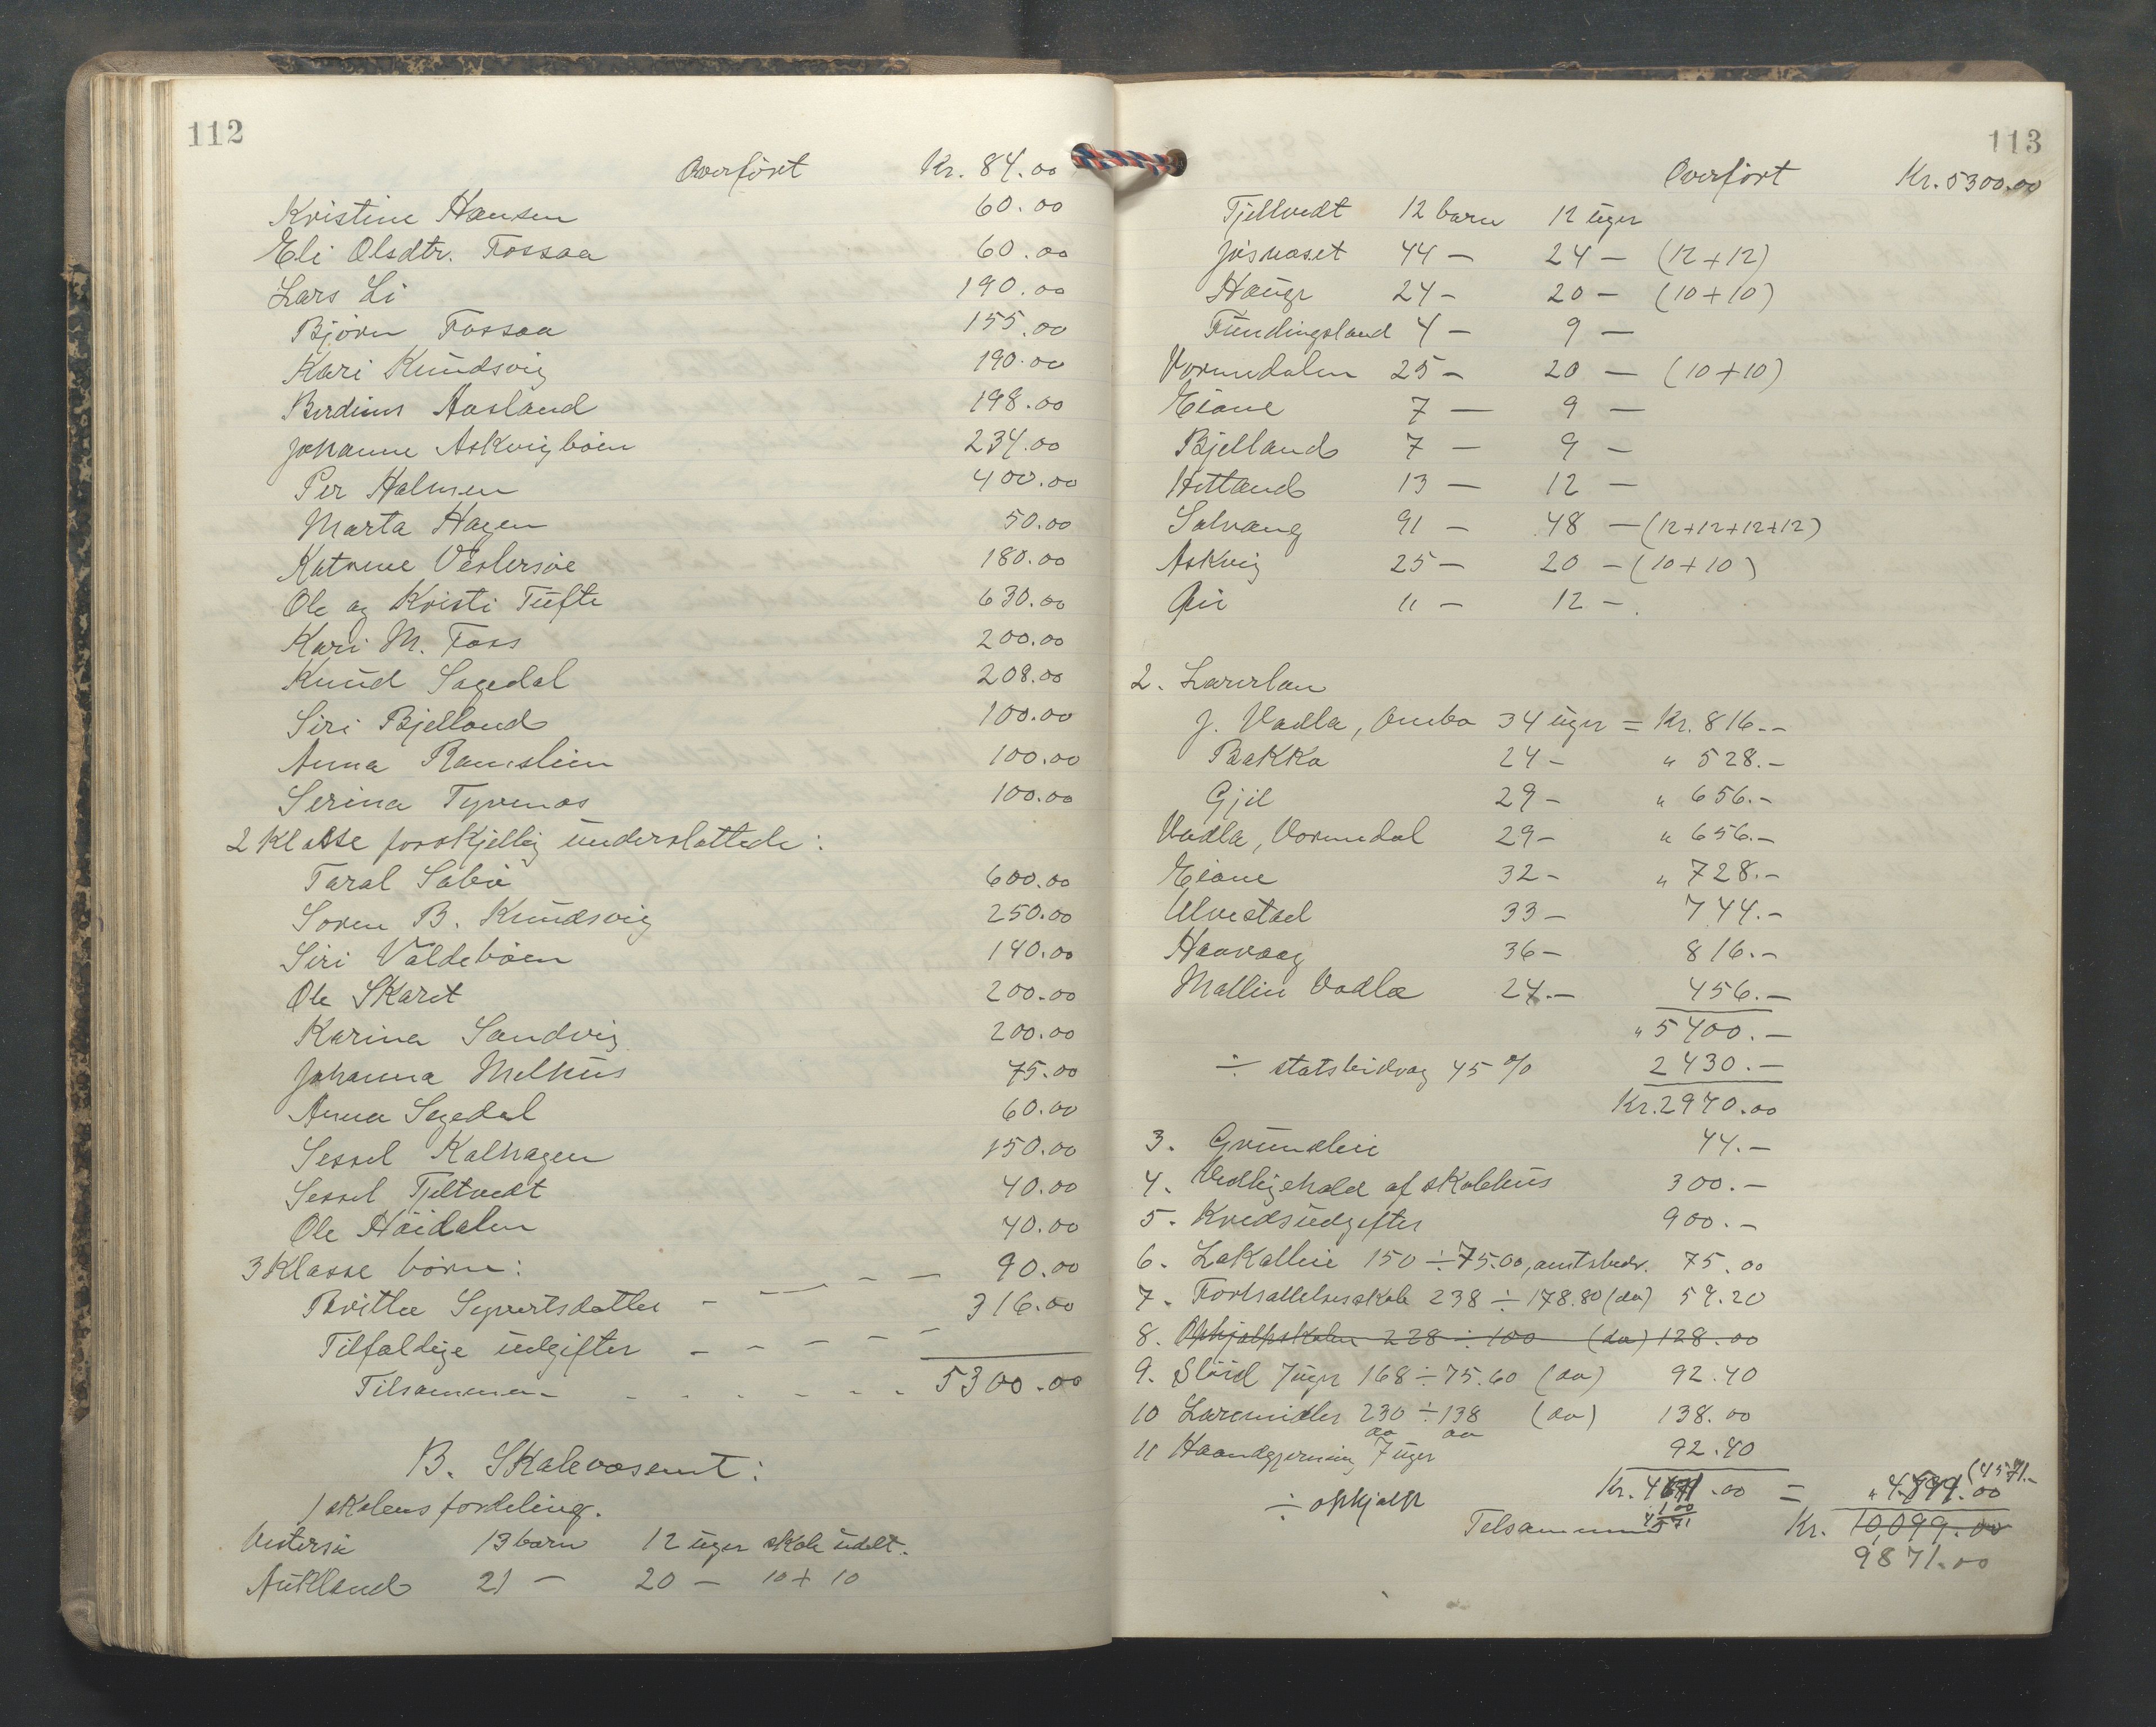 112
Overført Kr. 84.00
Kristine Hansen 60.00
Eli Olsdtr. Fossaa 60.00
Lars Li 190.00
Bjørn Fossaa 155.00
Kari Knudsvig 190.00
Berdines Aasland 198.00
Johanne Askvigbøen 234.00
Per Halmen 400.00
Marta Hagen 50.00
Katrine Vestersøe 180.00
Ole og Kristi Tufte 630.00
Kari M. Foss 200.00
Knud Sagedal 208.00
Siri Bjelland 100.00
Anna Ramslien 100.00
Serina Tyvenos 100.00
2 Klasse forskjellig understøttede:
Taral Sabø 600.00
Soren B. Knudsvig 250.00
Siri Valdebøen 140.00
Ole Skaret 200.00
Karina Sandvig 200.00
Johanna Melhus 75.00
Anna Sagedal 60.00
Sessel Kalhagen 150.00
Sessel Tjeltvedt 40.00
Ole Høidalen 40.00
3 Klasse børn: 90.00
Brithe Syvertsdatter - - - - 316.00
Tilfældige udgifter - - - - -
Tilsammen - - - - - - 5300.00
B. Skolevæsenet:
1 skolens fordeling.
Vestersø 13 barn 12 uger skole udelt.
Aukland 21 — 20 — 10 + 10
113
Overført Kr. 5300.00
Tjeltvedt 12 barn 12 uger
Jøsnæset 44 — 24 — (12 + 12)
Hauge 24 - 20 — (10 + 10)
Fundingsland 4 — 9 —
Vormedalen 25 - 20 — (10 + 10)
Eiane 7 — 9 —
Bjelland 7 — 9 —
Hetland 13 — 12 —
Solvang 91 — 48 — (12+12+12+12)
Askvig 25 — 20 — (10 + 10)
11 — 12 —
2. Lærerløn
J. Vadla, Ombo 34 uger = Kr. 816.--
Bakka 24 - " 528.-
Gjil 29 - " 656.-
Vadla, Vormedal 29 - " 656.-
Eiane 32 - " 728.-
Ulvestad 33 - 744.-
Haavaag 36 - 816.-
Mallin Vadla 24.— 456.—
" 5400.—
÷ statsbidrag 45 % 2430.—
Kr. 2970.00
3. Grundleie 44.—
4. Vedligehold af skolehus 300.—
5. Kredsudgifter 900.—
6. Lokalleie 150 ÷ 75.00, amtsbidr. 75.00
7. Fortsættelsesskole 238 ÷ 178.80 (do) 59.20
8. Ophjælpskolen 228 ÷ 100 (do) 128.00
9. Sløid 7 uger 168 ÷ 75.60 (do) 92.40
10 Læremidler 230 ÷ 138 (do) 138.00
do do
11 Haandgjerning 7 uger 92.40
Kr. 4671.00 = " 4.799.00 (4571.-
÷ ophjælp 100
4571
Tilsammen Kr. 10,099.00
9871.00